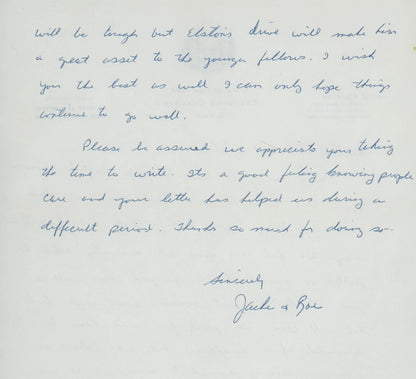 will be tough but Elston's drive will make him
a great asset to the younger fellows. I wish
you the best as well I can only hope things
continue to go well.
Please be assured we appreciate your taking
the time to write. Its a good feeling knowing people
care and your letter has helped us during a
difficult period. Thanks so much for doing so.
Sincerely
Jackie & Roe